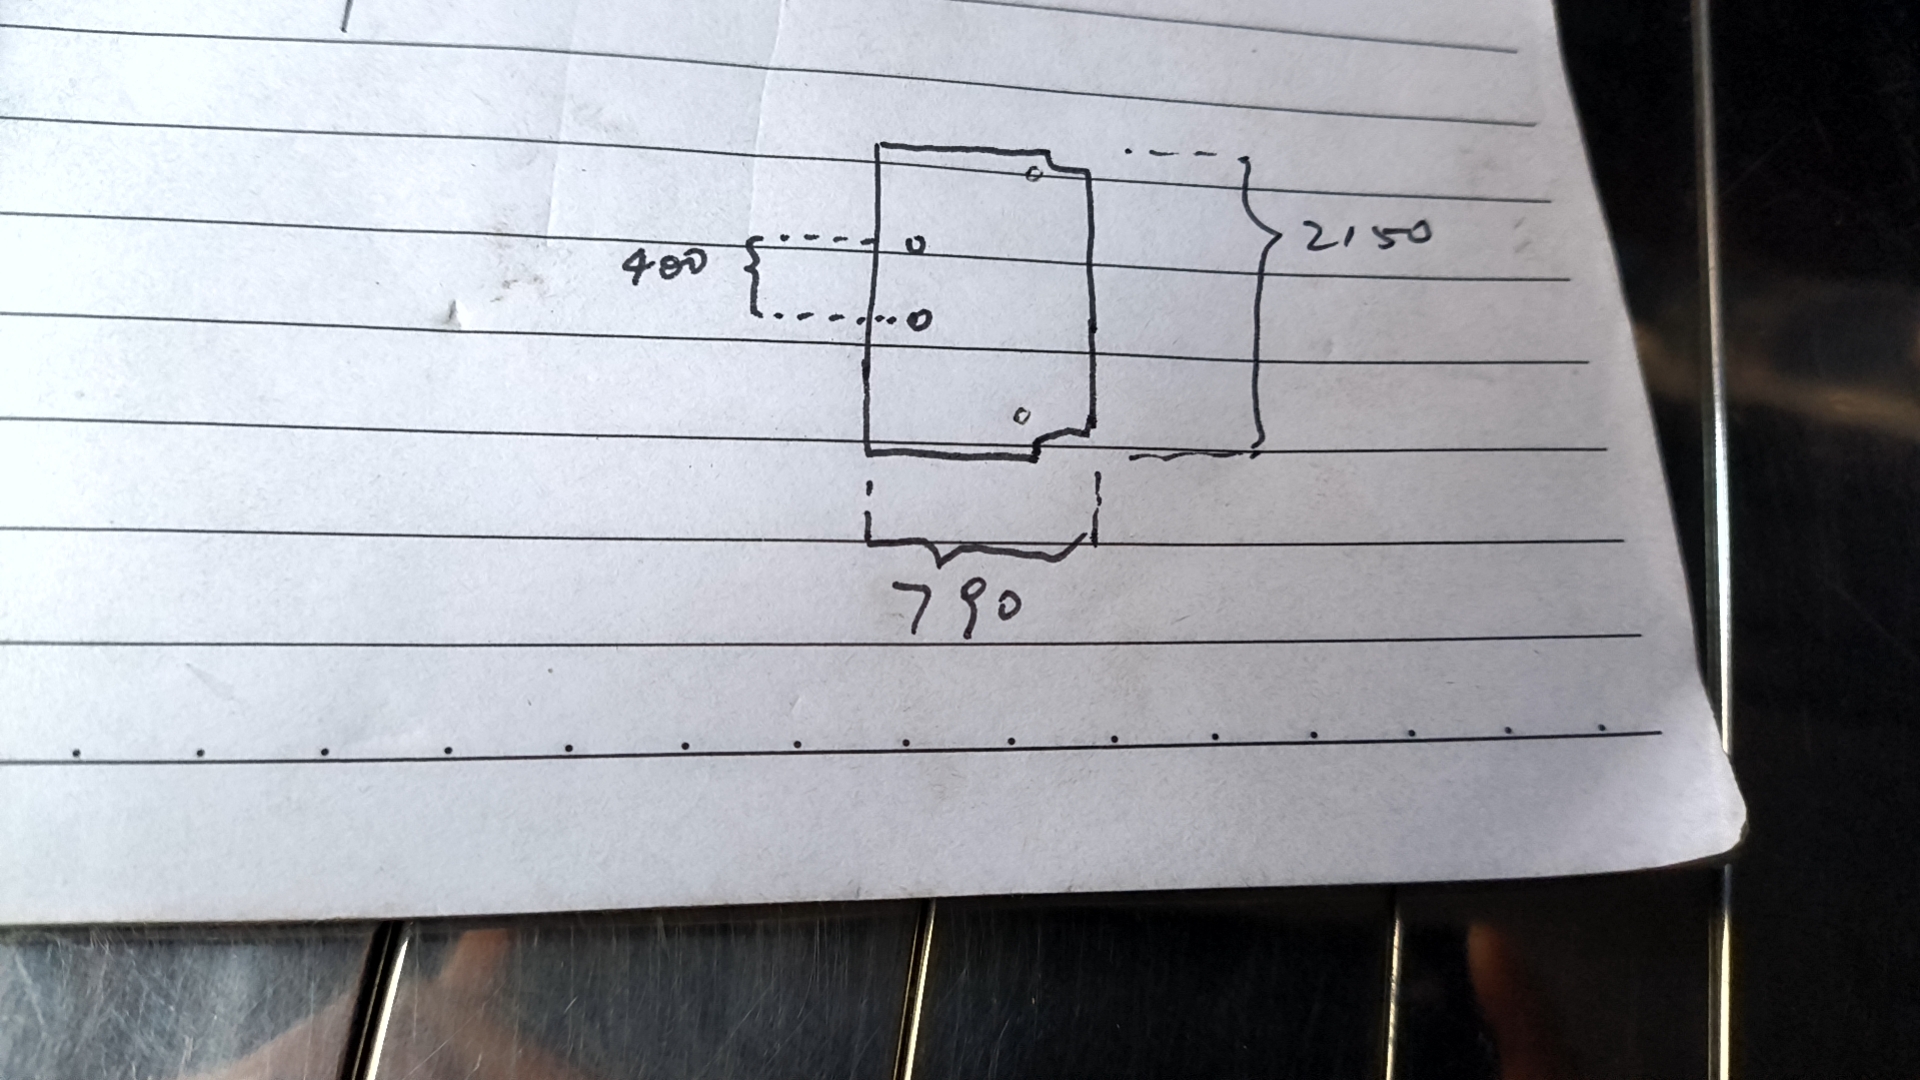 2150
400
790